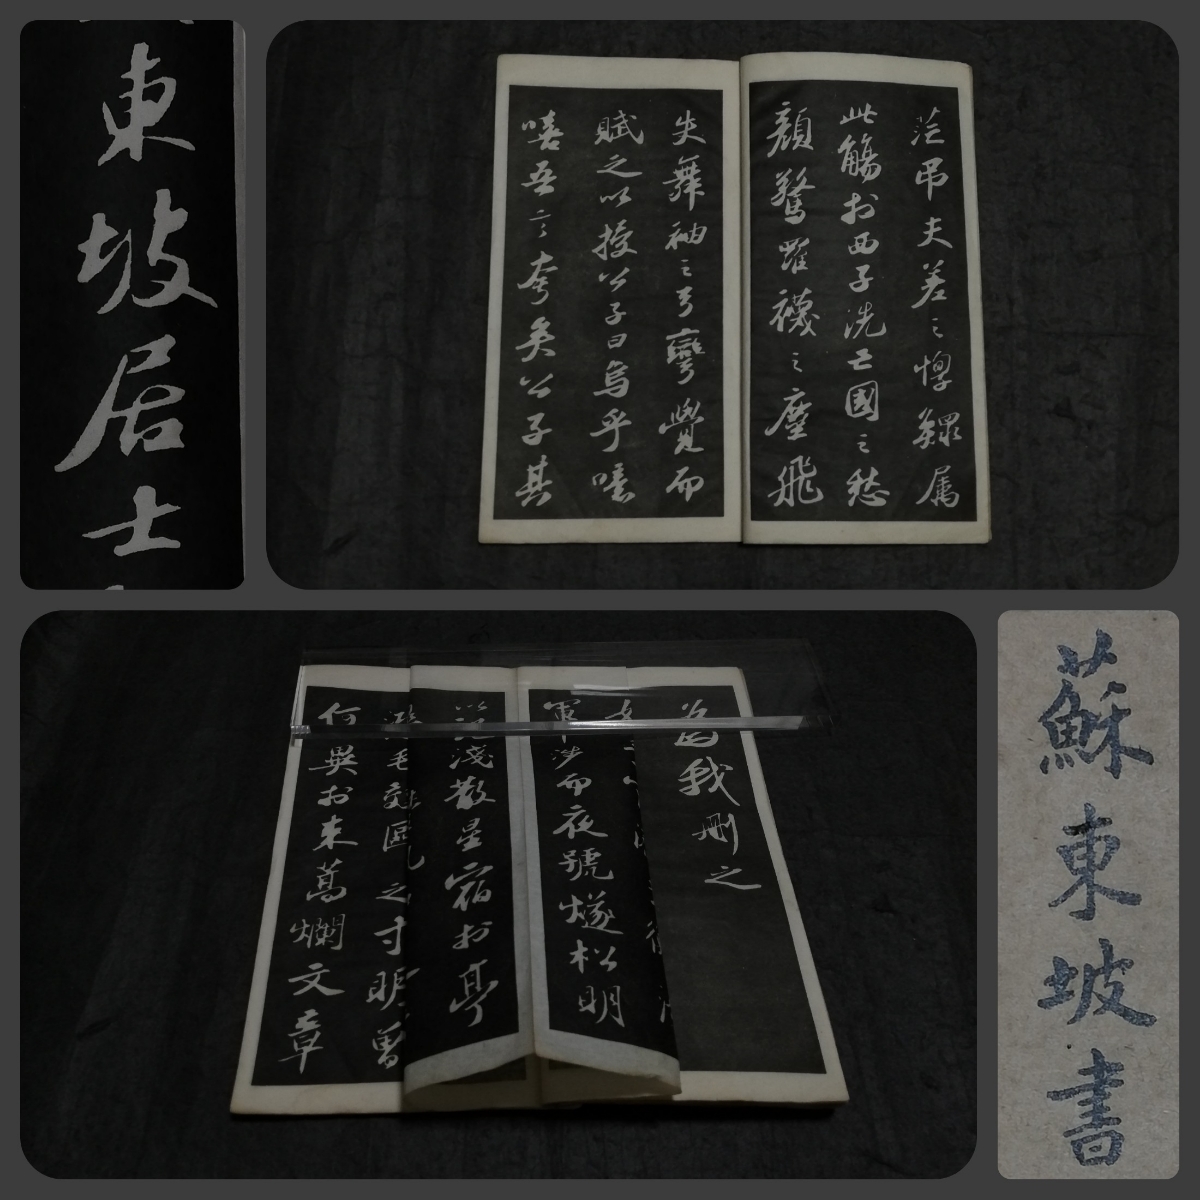 東坡居士
茫弔夫差之惸鰥属
此觴扵西子洗亡國之愁
顏驚羅襪之塵飛
失舞袖之弓彎覺而
賦之以授公子曰烏乎噫
嘻吾言夸矣公子其
為我刪之
軍涉而夜號燧松明
淺散星宿扵亭
之寸明曾
何異扵束蒿爛文章
蘇東坡書